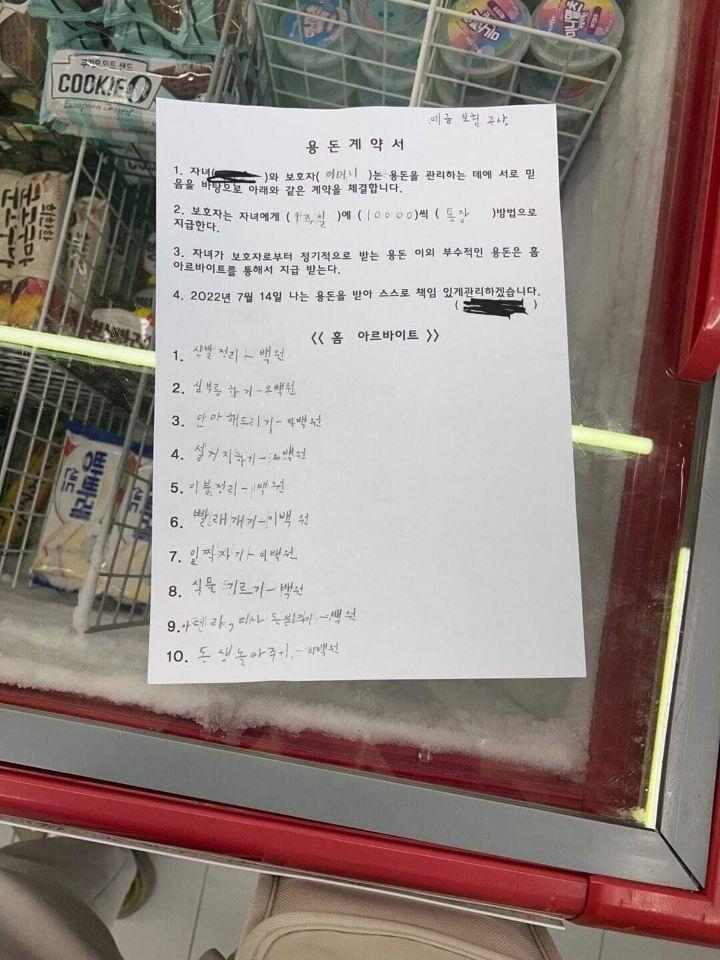 쿠키오 민트 샌드
COOKIE O
빵빠레
샌드
예금 보험 공사
용 돈 계 약 서
1. 자녀( )와 보호자( 어머니 )는 용돈을 관리하는 데에 서로 믿
음을 바탕으로 아래와 같은 계약을 체결합니다.
2. 보호자는 자녀에게 ( 1주일 )에 ( 10000)씩 ( 통장 )방법으로
지급한다.
3. 자녀가 보호자로부터 정기적으로 받는 용돈 이외 부수적인 용돈은 홈
아르바이트를 통해서 지급 받는다.
4. 2022년 7월 14일 나는 용돈을 받아 스스로 책임 있게관리하겠습니다.
( )
<< 홈 아르바이트 >>
1. 신발정리 - 백원
2. 심부름 하기 - 오백원
3. 안마해드리기 - 백원
4. 설거지하기 - 백원
5. 이불정리 - 백원
6. 빨래개기 - 이백 원
7. 일찍자기 - 이백원
8. 식물 기르기 - 백원
9. - 백원
10. 동생놀아주기. - 백원